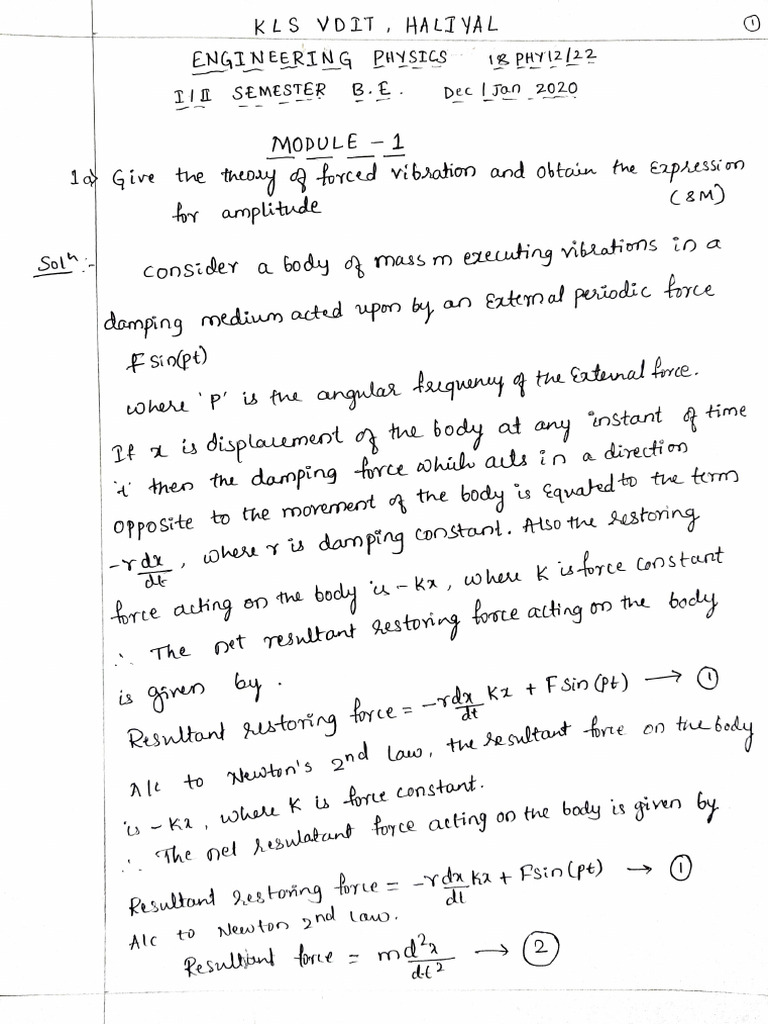 KLS VDIT, HALIYAL
1
ENGINEERING PHYSICS 18PHY12/22
I/II SEMESTER B.E. Dec/Jan 2020
MODULE - 1
1a) Give the theory of forced vibration and obtain the Expression
for amplitude (8M)
Solⁿ:- Consider a body of mass m executing vibrations in a
damping medium acted upon by an External periodic force
F sin(pt)
where 'P' is the angular frequency of the External force.
If x is displacement of the body at any instant of time
't' then the damping force which acts in a direction
opposite to the movement of the body is Equated to the term
-r dx/dt, where r is damping constant. Also the restoring
force acting on the body is -Kx, where K is force constant
∴ The net resultant restoring force acting on the body
is given by.
Resultant restoring force = -r dx/dt Kx + F sin(pt) → ①
A/c to Newton's 2nd Law, the resultant force on the body
is -Kx, where K is force constant.
∴ The net resulatant force acting on the body is given by
Resultant restoring force = -r dx/dt Kx + F sin(pt) → ①
A/c to Newton 2nd law.
Resultant force = m d²x/dt² → ②